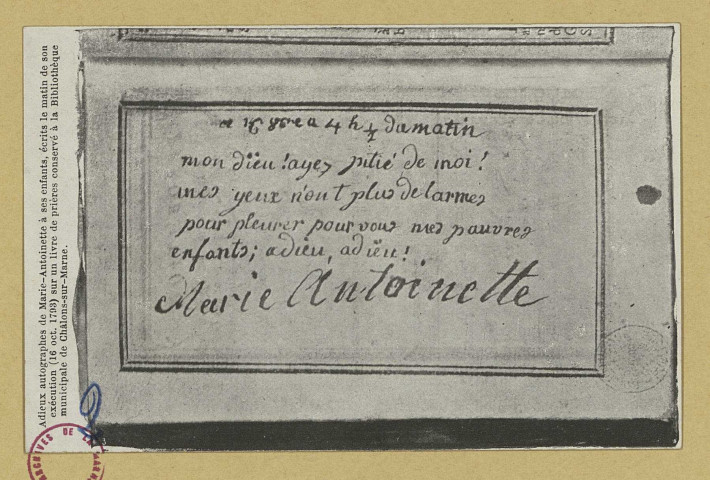 Adieux autographes de Marie-Antoinette à ses enfants, écrits le matin de son
exécution (16 oct. 1793) sur un livre de prières conservé à la Bibliothèque
municipale de Châlons-sur-Marne.
ce 16 8bre a 4 h ½ du matin
mon dieu ! ayez pitié de moi !
mes yeux n'ont plus de larmes
pour pleurer pour vous mes pauvres
enfants; adieu, adieu !
Marie Antoinette
ARCHIVES DE LA MARNE